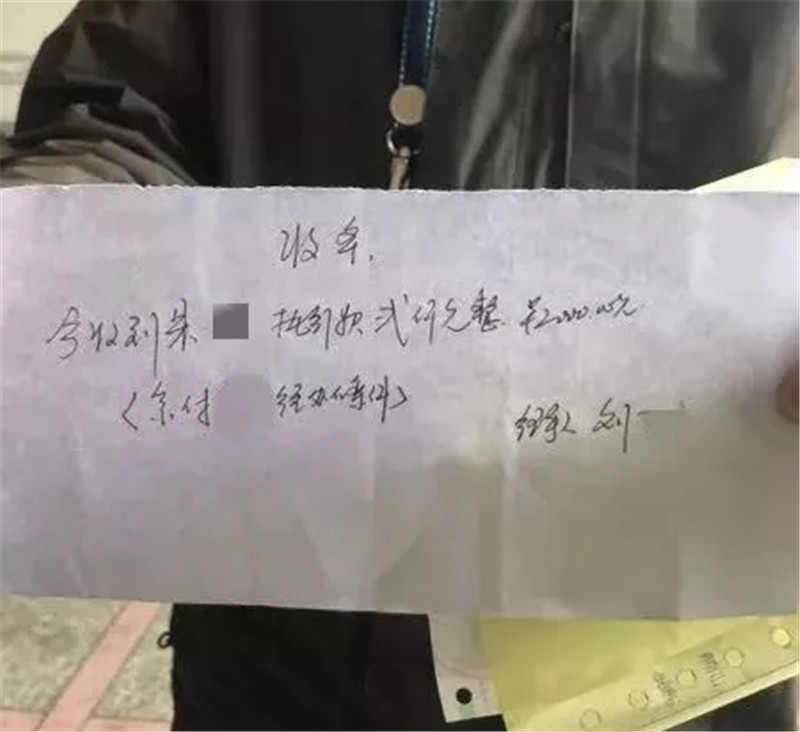 收条.
今收到朱 执行款 弍仟元整 ¥2000.00元.
(系付 经办的案件)
经手人 刘